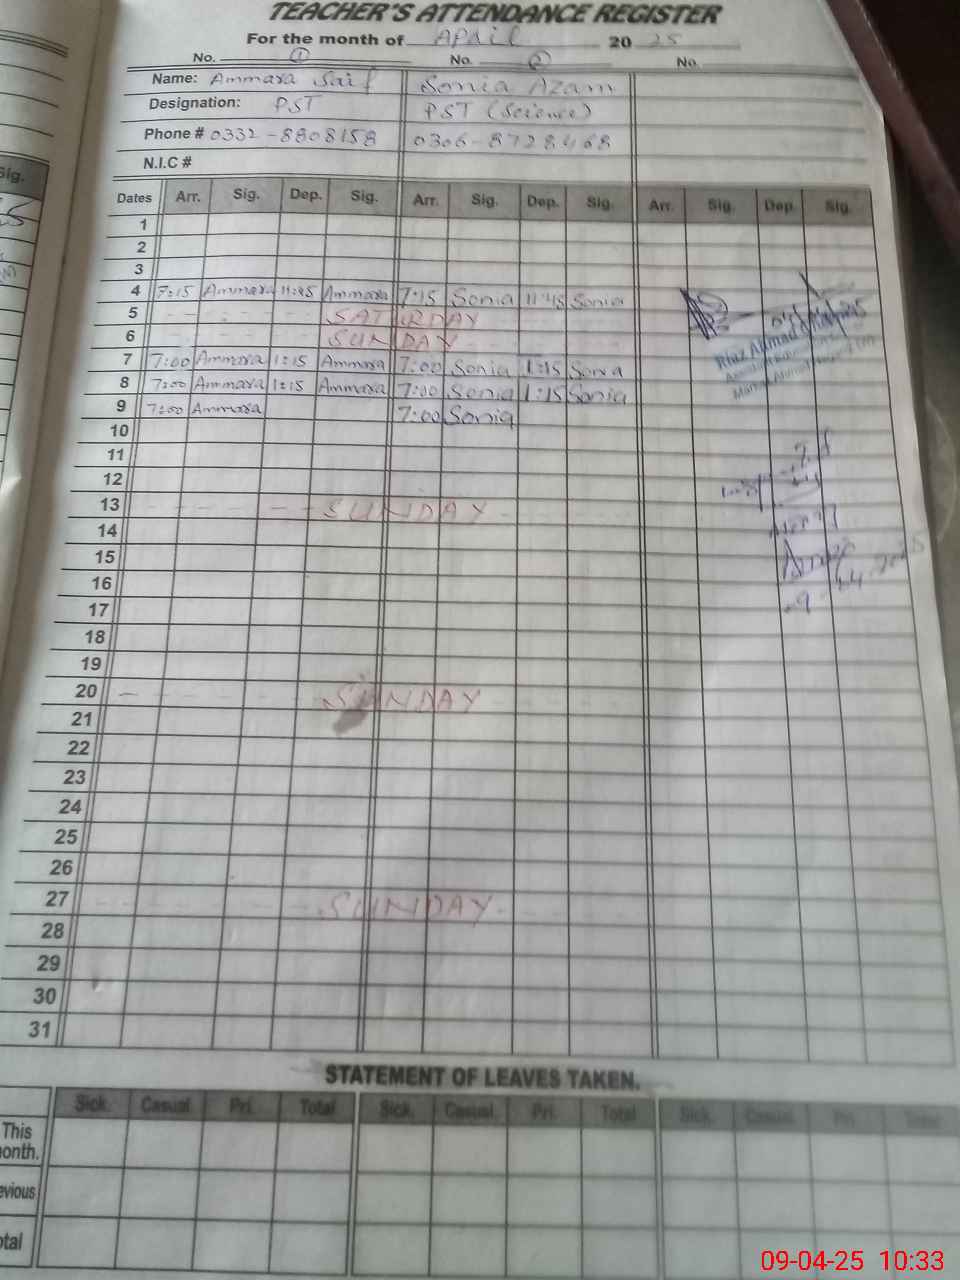 TEACHER'S ATTENDANCE REGISTER
For the month of APail 20 25
No. 1 No. 2 No.
Name: Ammara Saif Sonia Azam
Designation: PST PST (Science)
Phone # 0332-8808158 0306-8728468
N.I.C #
Sig.
Dates Arr. Sig. Dep. Sig. Arr. Sig. Dep. Sig. Arr. Sig. Dep. Sig.
1
2
3
4 7:15 Ammara 11:45 Ammara 7:15 Sonia 11:45 Sonia
5 SATURDAY
6 SUNDAY
7 7:00 Ammara 1:15 Ammara 7:00 Sonia 1:15 Sonia
8 7:00 Ammara 1:15 Ammara 7:00 Sonia 1:15 Sonia
9 7:00 Ammara 7:00 Sonia
Riaz Ahmad
10
11
12
13 SUNDAY
14
15
16
17
18
19
20 SUNDAY
21
22
23
24
25
26
27 SUNDAY
28
29
30
31
STATEMENT OF LEAVES TAKEN.
Sick. Casual. Pri. Total Sick. Casual. Pri. Total Sick. Casual. Pri. Total
This
onth.
evious
otal
09-04-25 10:33